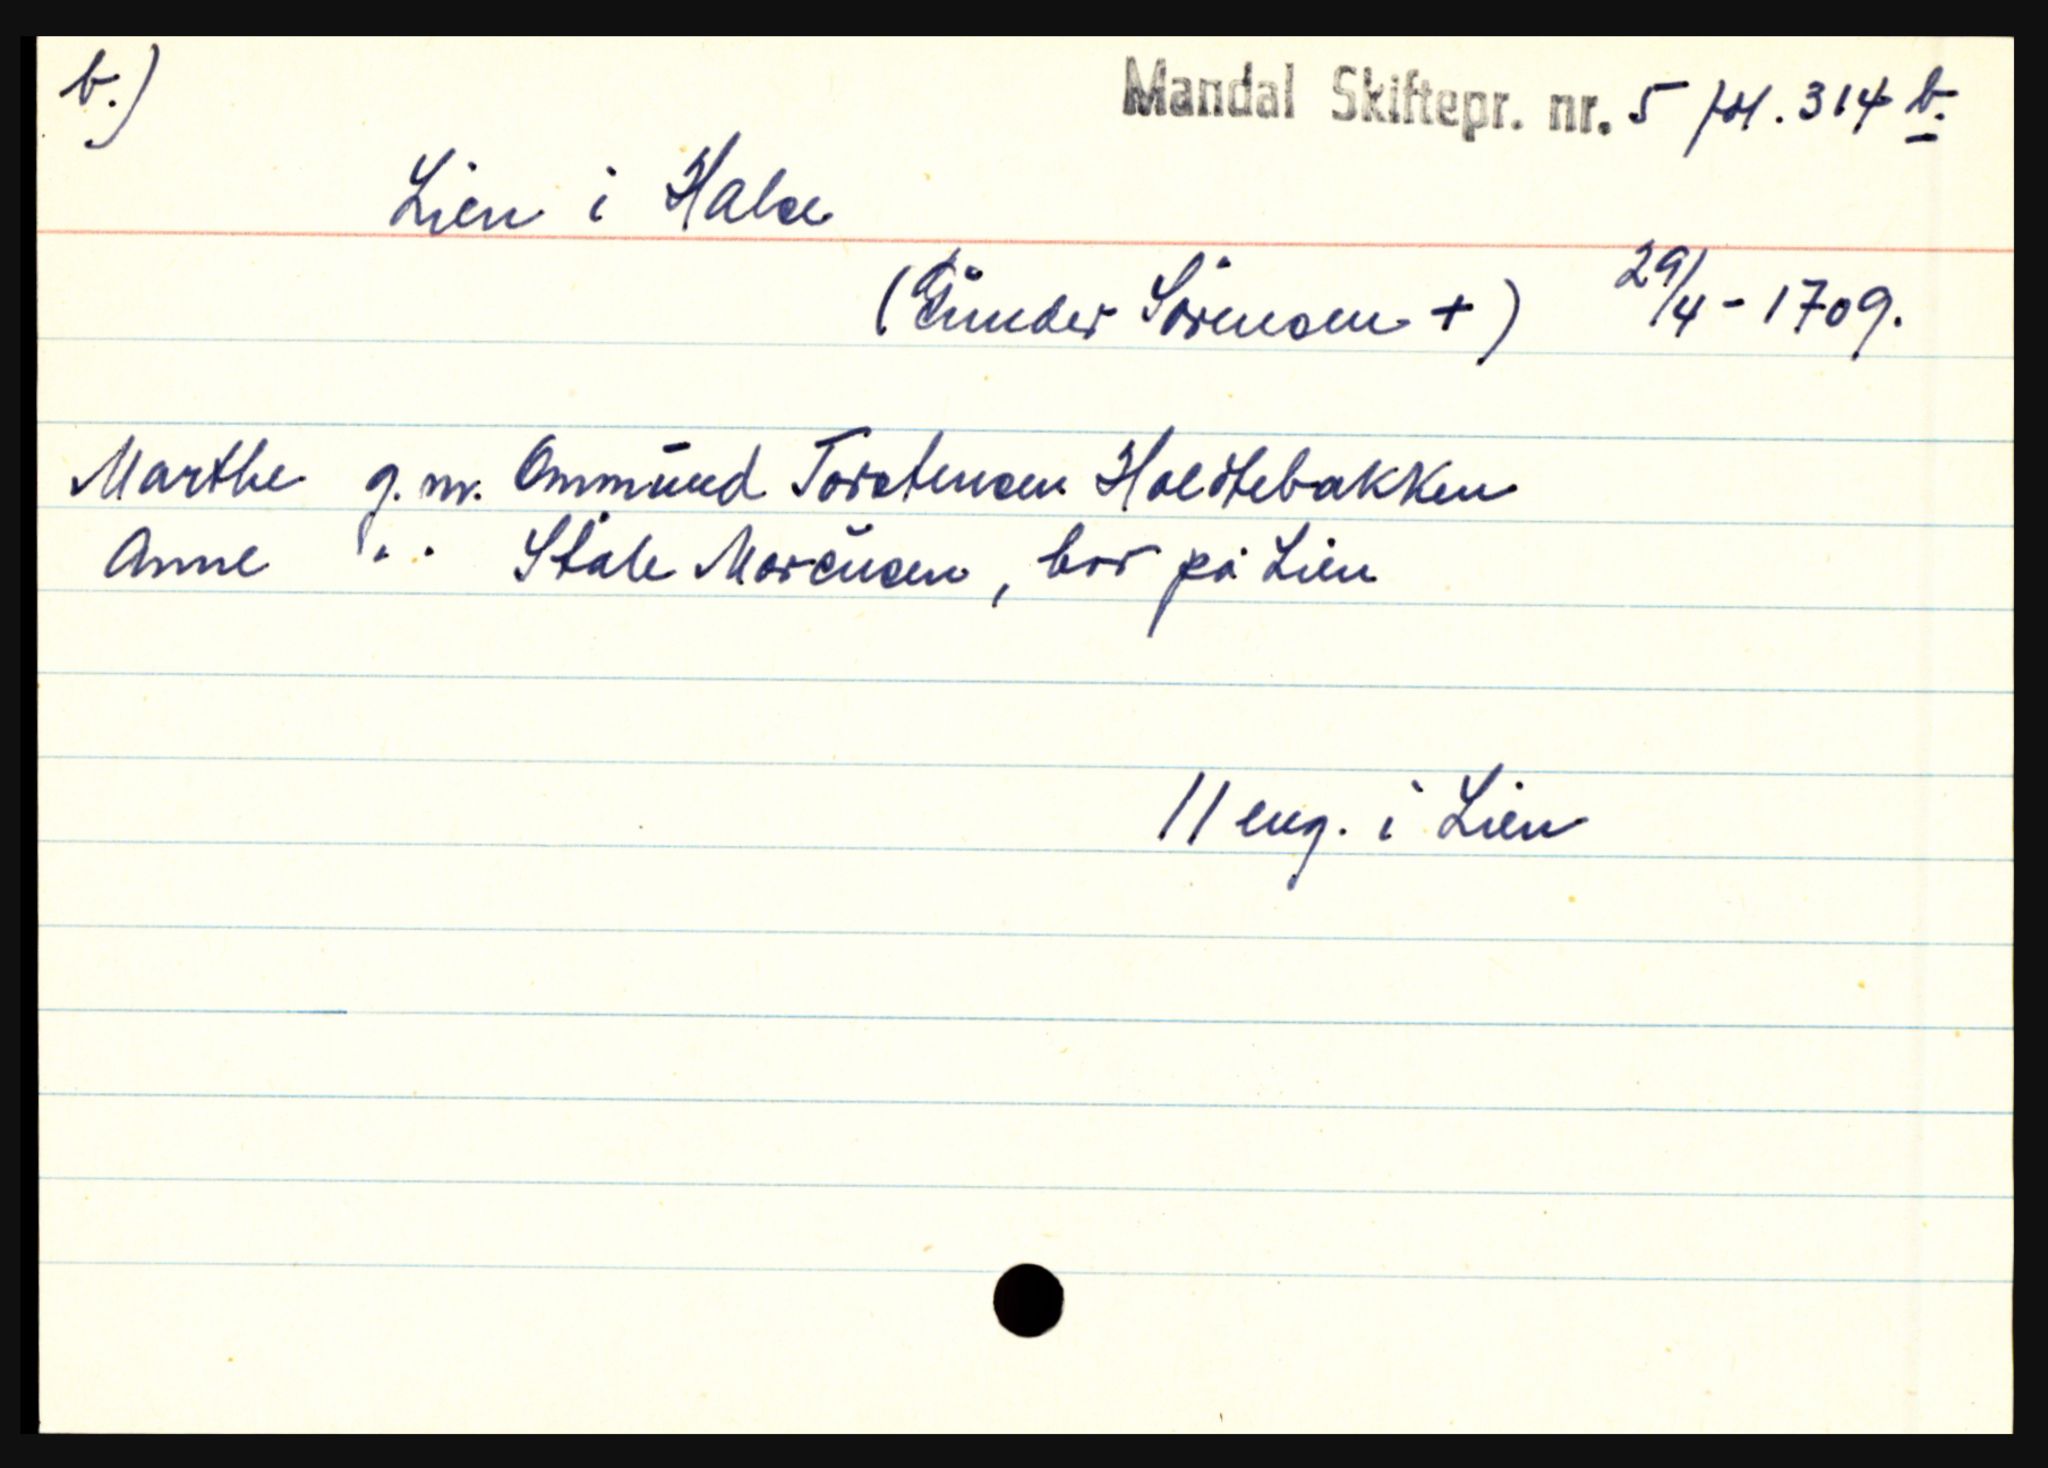 b.)
Mandal Skiftepr. nr. 5 fol. 314 b.
Lien i Halse
(Gunder Sörensen +) 29/4 - 1709.
Marthe g. m. Ommund Torstensen Holstebakken
Anne " " Ståle Marcusen, bor på Lien
11 eng. i Lien